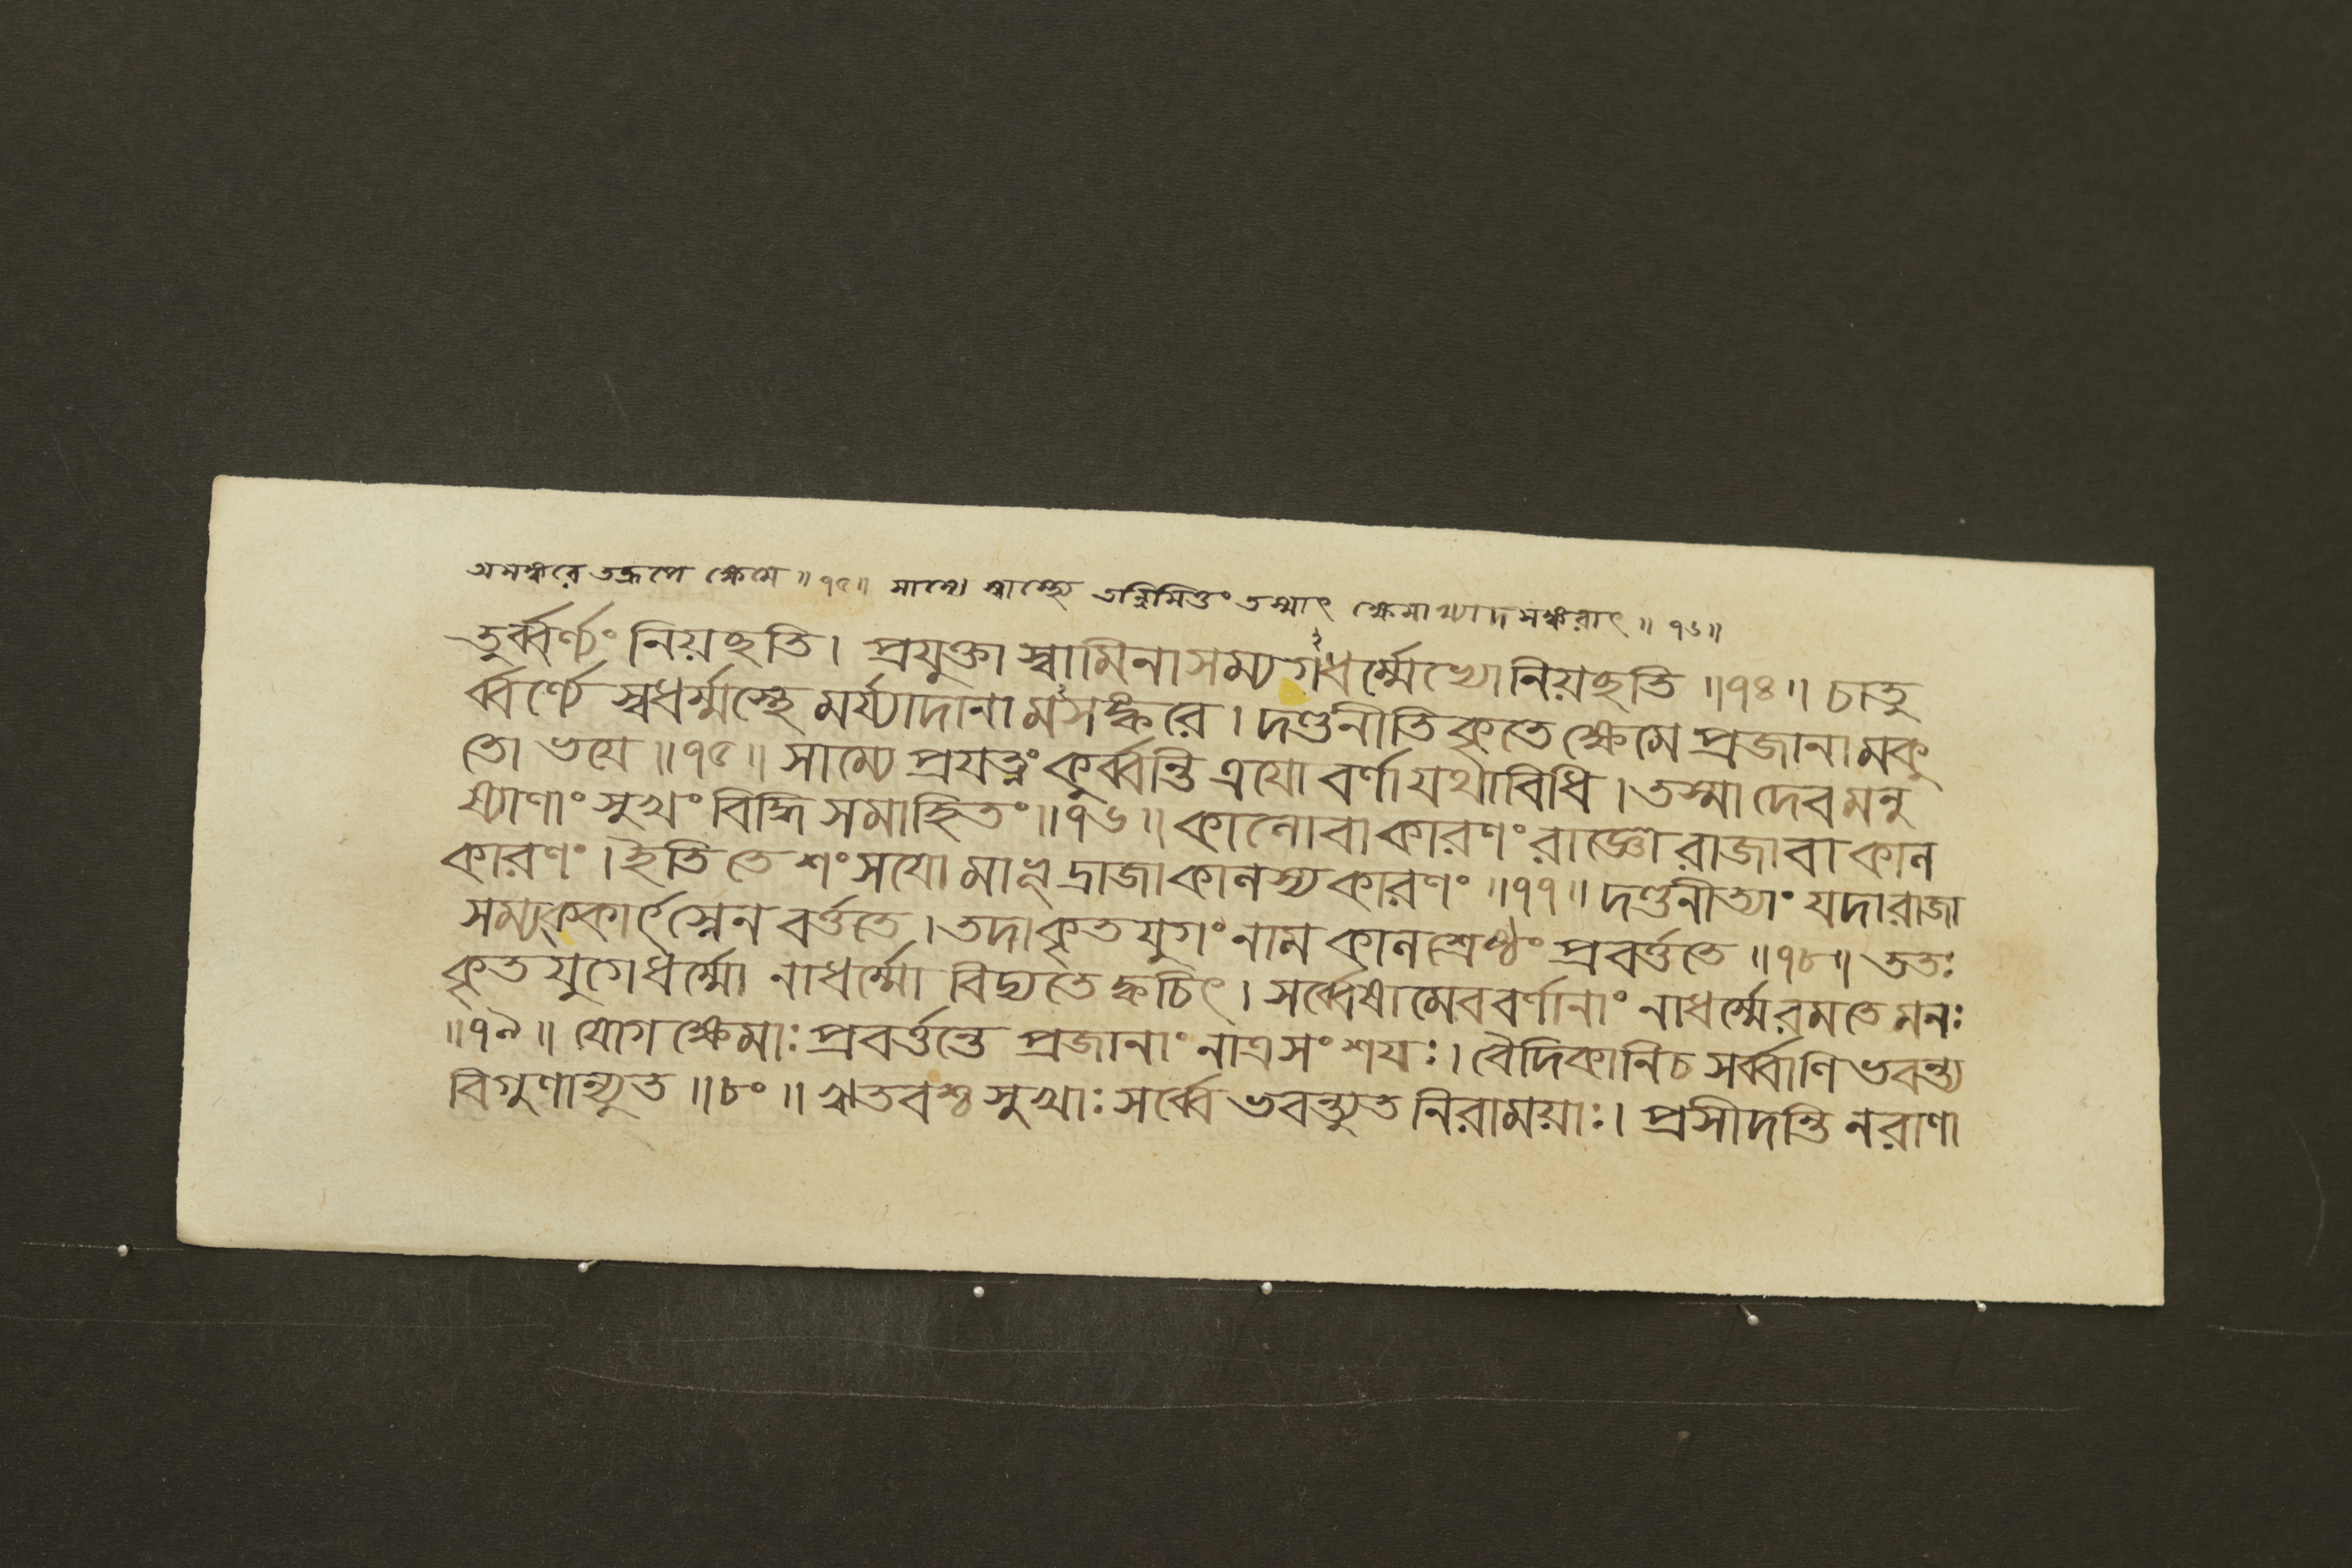 অসঙ্করে তদ্রূপে ক্ষেমে ॥ ৭৫॥ সাম্যে স্বাস্থ্যে তন্নিমিত্তং তস্মাৎ ক্ষেমাখ্যাদসঙ্করাৎ ॥ ৭৬॥
তুর্ব্বর্ণ্যং নিয়চ্ছতি। প্রযুক্তা স্বামিনাসম্যগধর্ম্মেভ্যোনিয়চ্ছতি ॥৭৪॥ চাতু
র্ব্বর্ণ্যে স্বধর্ম্মস্থে মর্য্যাদানামসঙ্করে। দণ্ডনীতিকৃতে ক্ষেমে প্রজানামকু
তো ভয়ে ॥৭৫॥ সাম্যে প্রযত্নং কুর্ব্বন্তি ত্রযো বর্ণা যথাবিধি। তস্মাদেবমনু
ষ্যাণাং সুখং বিদ্ধি সমাহিতং॥৭৬॥ কালোবা কারণং রাজ্ঞো রাজাবা কাল
কারণং। ইতি তে শংসযো মাভূদ্রাজাকালস্য কারণং ॥৭৭॥ দণ্ডনীত্যাং যদারাজা
সম্যক্কার্ৎস্নেন বর্ত্ততে। তদাকৃতযুগং নাম কালশ্রেষ্ঠং প্রবর্ত্ততে ॥৭৮॥ ততঃ
কৃতযুগেধর্ম্মো নাধর্ম্মো বিদ্যতে ক্বচিৎ। সর্ব্বেষামেববর্ণানাং নাধর্ম্মেরমতে মনঃ
॥৭৯॥ যোগক্ষেমাঃ প্রবর্ত্তন্তে প্রজানাং নাত্রসংশযঃ। বৈদিকানিচ সর্ব্বাণি ভবন্ত্য
বিগুণান্যুত ॥৮০॥ ঋতবশ্চ সুখাঃ সর্ব্বে ভবন্ত্যুত নিরাময়াঃ। প্রসীদন্তি নরাণা